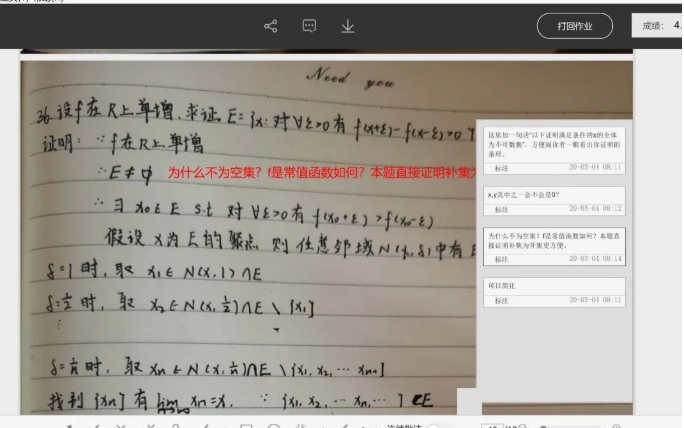 打回作业
成绩: 4.
Need you
36.设f在R上单增,求证E={x:对∀ε>0有 f(x+ε)-f(x-ε)>0
证明: ∵f在R上单增
∴E≠ф 为什么不为空集?f是常值函数如何?本题直接证明补集
∴∃ x₀∈E s.t 对∀ε>0有 f(x₀+ε)>f(x₀-ε)
假设 x为E的聚点 则任意邻域N(x,δ)中有
δ=1时,取 x₁∈N(x,1)∩E
δ=½时,取 x₂∈N(x,½)∩E \ {x₁}
⋮
δ=1/n时,取 xₙ∈N(x,1/n)∩E \ {x₁,x₂,⋯xₙ₋₁}
找到{xₙ}有 lim xₙ=x, ∵ {x₁,x₂,⋯xₙ,⋯}⊂E
这里加一句话"以下证明满足条件的x的全体
为不可数集",方便阅读者一眼看出你证明的
条理。
标注 20-03-04 08:11
x,y其中之一会不会是0?
标注 20-03-04 08:12
为什么不为空集?f是常值函数如何?本题直
接证明补集为开集更方便。
标注 20-03-04 08:14
可以简化
标注 20-03-04 09:11